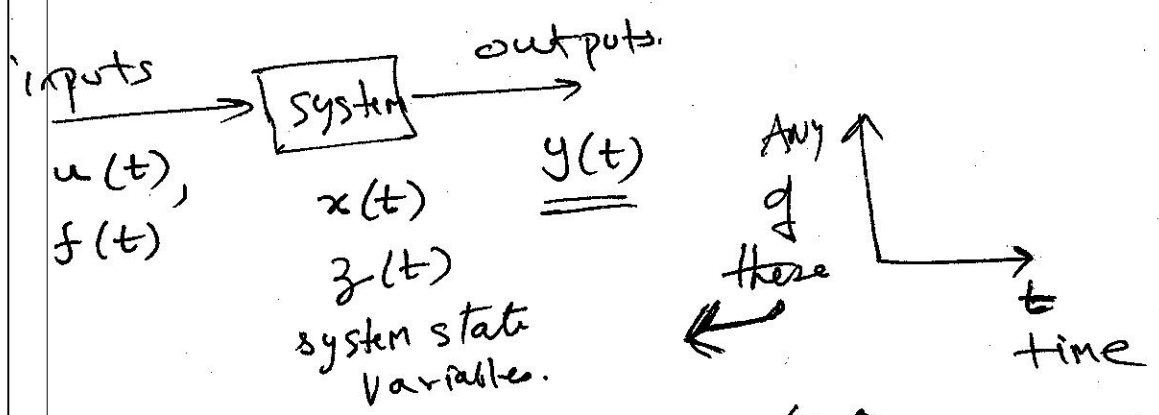 inputs
system
outputs.
u(t),
f(t)
x(t)
z(t)
system state
variables.
y(t)
Any
of
these
t
time